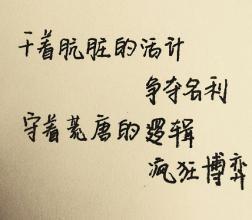 干着肮脏的活计
争夺名利
守着荒唐的逻辑
疯狂博弈